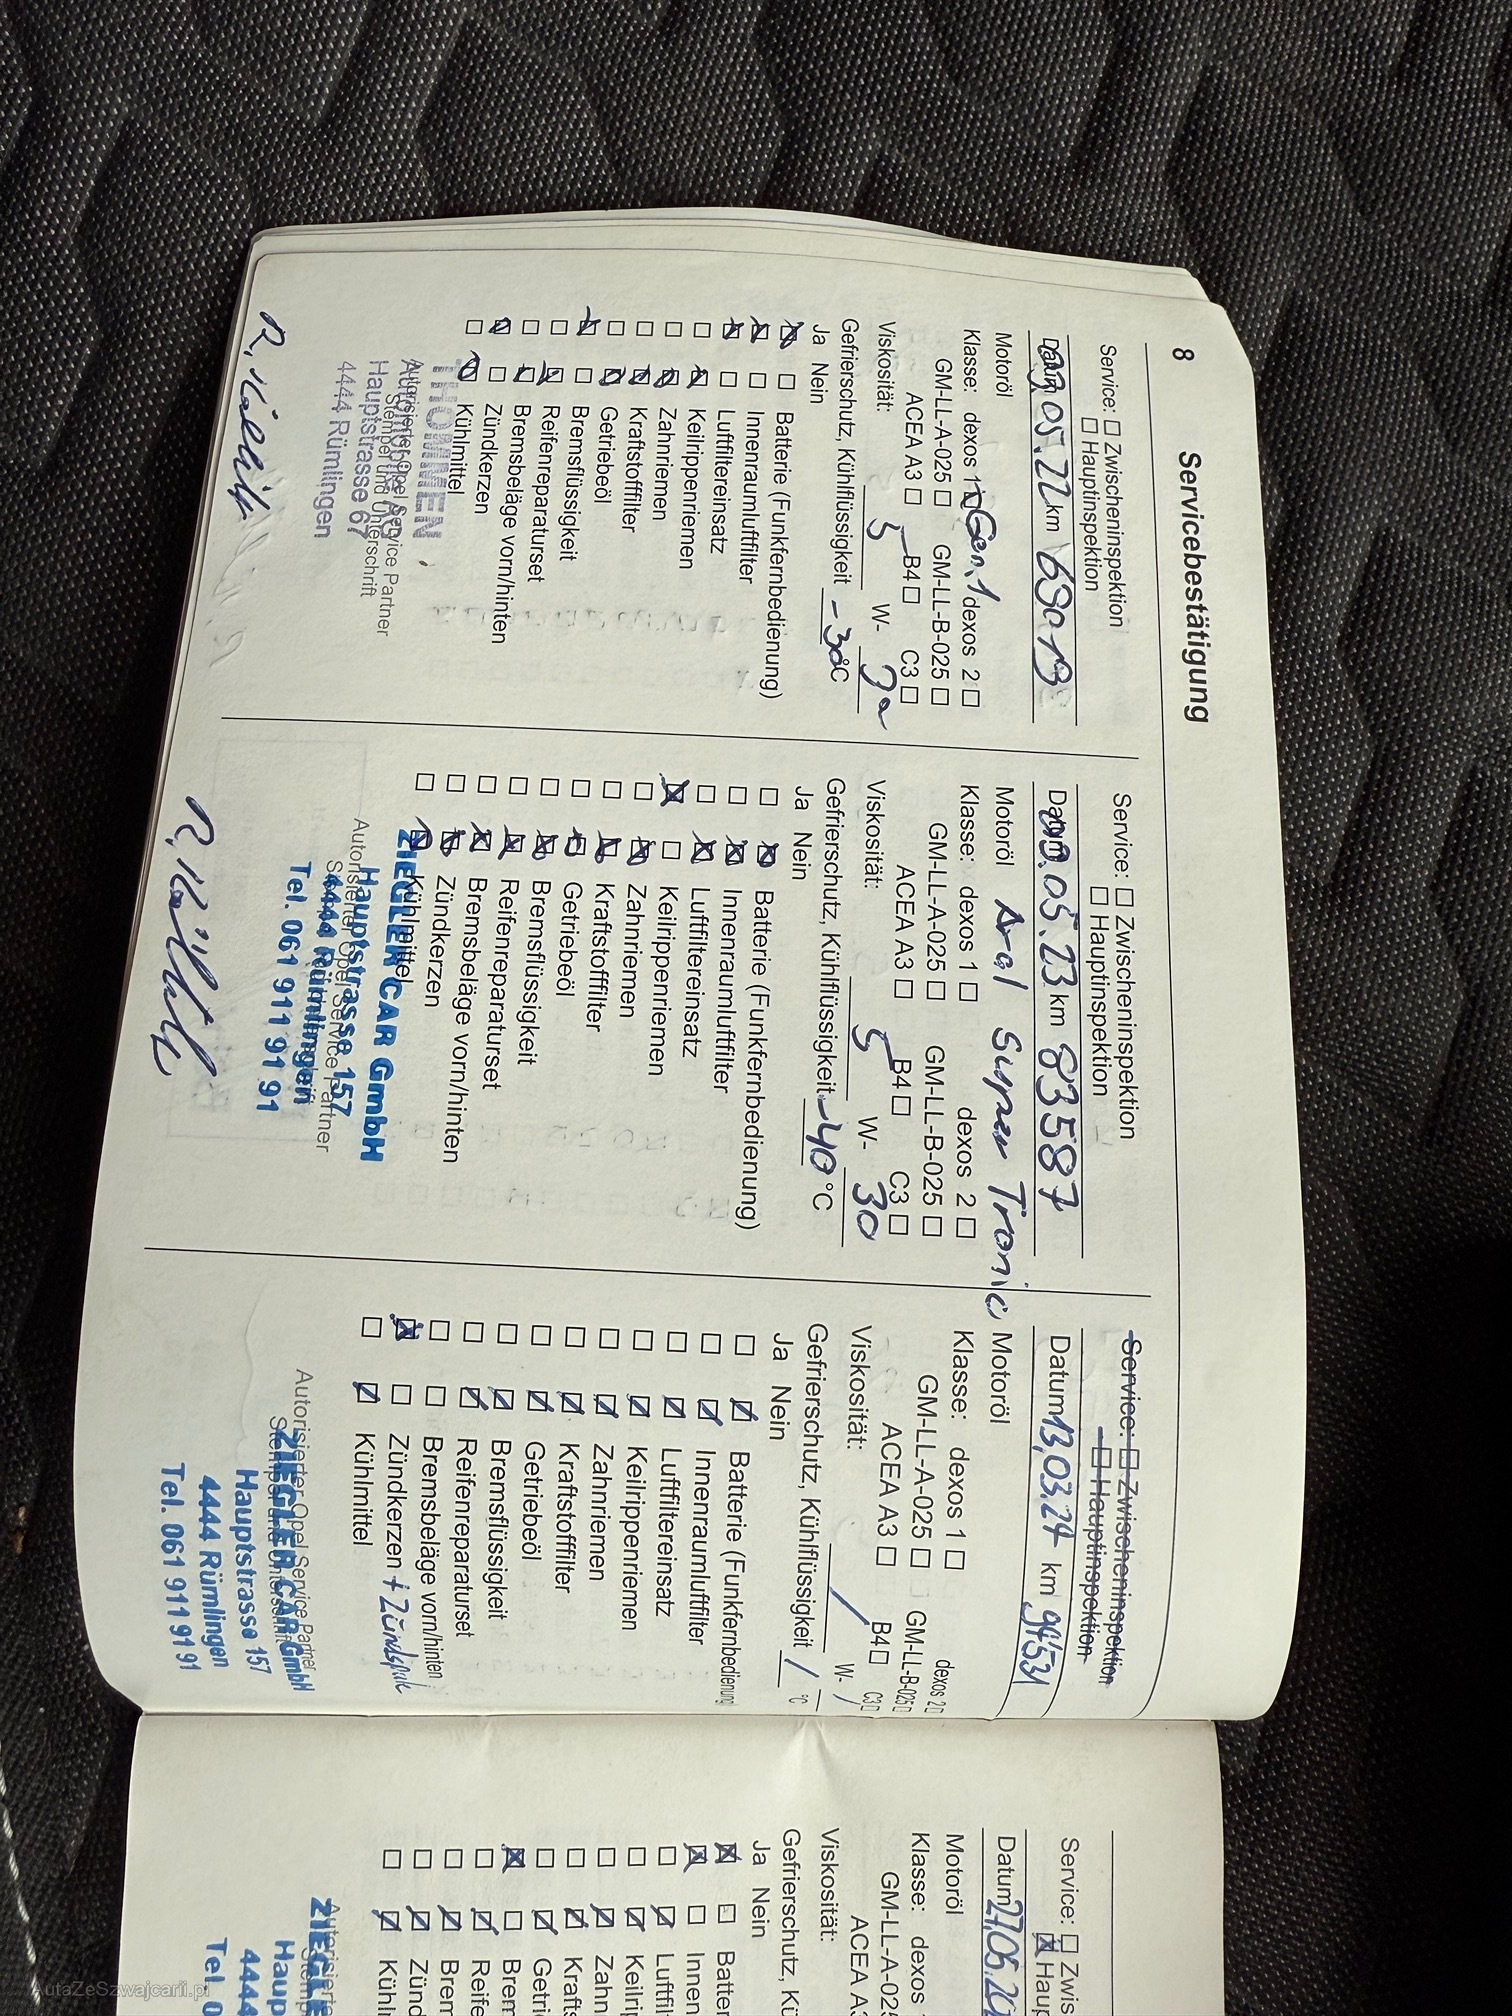 8
Servicebestätigung
Service: ☐ Zwischeninspektion
☐ Hauptinspektion
Datum 05.22 km
Motoröl
Klasse: dexos 1 Gen.1 dexos 2 ☐
GM-LL-A-025 ☐ GM-LL-B-025 ☐
ACEA A3 ☐ B4 ☐ C3 ☐
Viskosität: 5 W-
Gefrierschutz, Kühlflüssigkeit -30°C
Ja Nein
☒ ☐ Batterie (Funkfernbedienung)
☒ ☐ Innenraumluftfilter
☒ ☐ Luftfiltereinsatz
☐ ☒ Keilrippenriemen
☐ ☒ Zahnriemen
☐ ☒ Kraftstofffilter
☐ ☒ Getriebeöl
☒ ☐ Bremsflüssigkeit
☐ ☒ Reifenreparaturset
☐ ☒ Bremsbeläge vorn/hinten
☒ ☐ Zündkerzen
☐ ☒ Kühlmittel
THOMMEN
Autorisierter Opel Service Partner
Stempel und Unterschrift
Hauptstrasse 67
4444 Rümlingen
Service: ☐ Zwischeninspektion
☐ Hauptinspektion
Datum 09.05.23 km 83587
Motoröl Aral Super Tronic
Klasse: dexos 1 ☐ dexos 2 ☐
GM-LL-A-025 ☐ GM-LL-B-025 ☐
ACEA A3 ☐ B4 ☐ C3 ☐
Viskosität: 5 W- 30
Gefrierschutz, Kühlflüssigkeit -40 °C
Ja Nein
☐ ☒ Batterie (Funkfernbedienung)
☐ ☒ Innenraumluftfilter
☐ ☒ Luftfiltereinsatz
☒ ☐ Keilrippenriemen
☐ ☒ Zahnriemen
☐ ☒ Kraftstofffilter
☐ ☒ Getriebeöl
☐ ☒ Bremsflüssigkeit
☐ ☒ Reifenreparaturset
☐ ☒ Bremsbeläge vorn/hinten
☐ ☒ Zündkerzen
☐ ☒ Kühlmittel
ZIEGLER CAR GmbH
Autorisierter Opel Service Partner
Hauptstrasse 157
4444 Rümlingen
Tel. 061 911 91 91
Service: ☐ Zwischeninspektion
☐ Hauptinspektion
Datum 13,03.24 km 94'531
Motoröl
Klasse: dexos 1 ☐ dexos 2 ☐
GM-LL-A-025 ☐ GM-LL-B-025 ☐
ACEA A3 ☐ B4 ☐ C3 ☐
Viskosität: / W- /
Gefrierschutz, Kühlflüssigkeit / °C
Ja Nein
☐ ☒ Batterie (Funkfernbedienung)
☐ ☒ Innenraumluftfilter
☐ ☒ Luftfiltereinsatz
☐ ☒ Keilrippenriemen
☐ ☒ Zahnriemen
☐ ☒ Kraftstofffilter
☐ ☒ Getriebeöl
☐ ☒ Bremsflüssigkeit
☐ ☒ Reifenreparaturset
☐ ☐ Bremsbeläge vorn/hinten
☒ ☐ Zündkerzen +
☐ ☒ Kühlmittel
Autorisierter Opel Service Partner
ZIEGLER CAR GmbH
Hauptstrasse 157
4444 Rümlingen
Tel. 061 911 91 91
Service: ☐ Zwis
☒ Haup
Datum
Motoröl
Klasse: dexos
GM-LL-A-02
ACEA A3
Viskosität:
Gefrierschutz, Kü
Ja Nein
☒ ☐ Batter
☒ ☐ Innen
☐ ☒ Luftfil
☐ ☒ Keilri
☐ ☒ Zahn
☐ ☒ Kraft
☐ ☒ Getri
☒ ☐ Brem
☐ ☒ Reife
☐ ☒ Brem
☐ ☒ Zünd
☐ ☒ Kühl
ZIEGLE
Haup
4444
Tel. 0
AutaZeSzwajcarii.pl